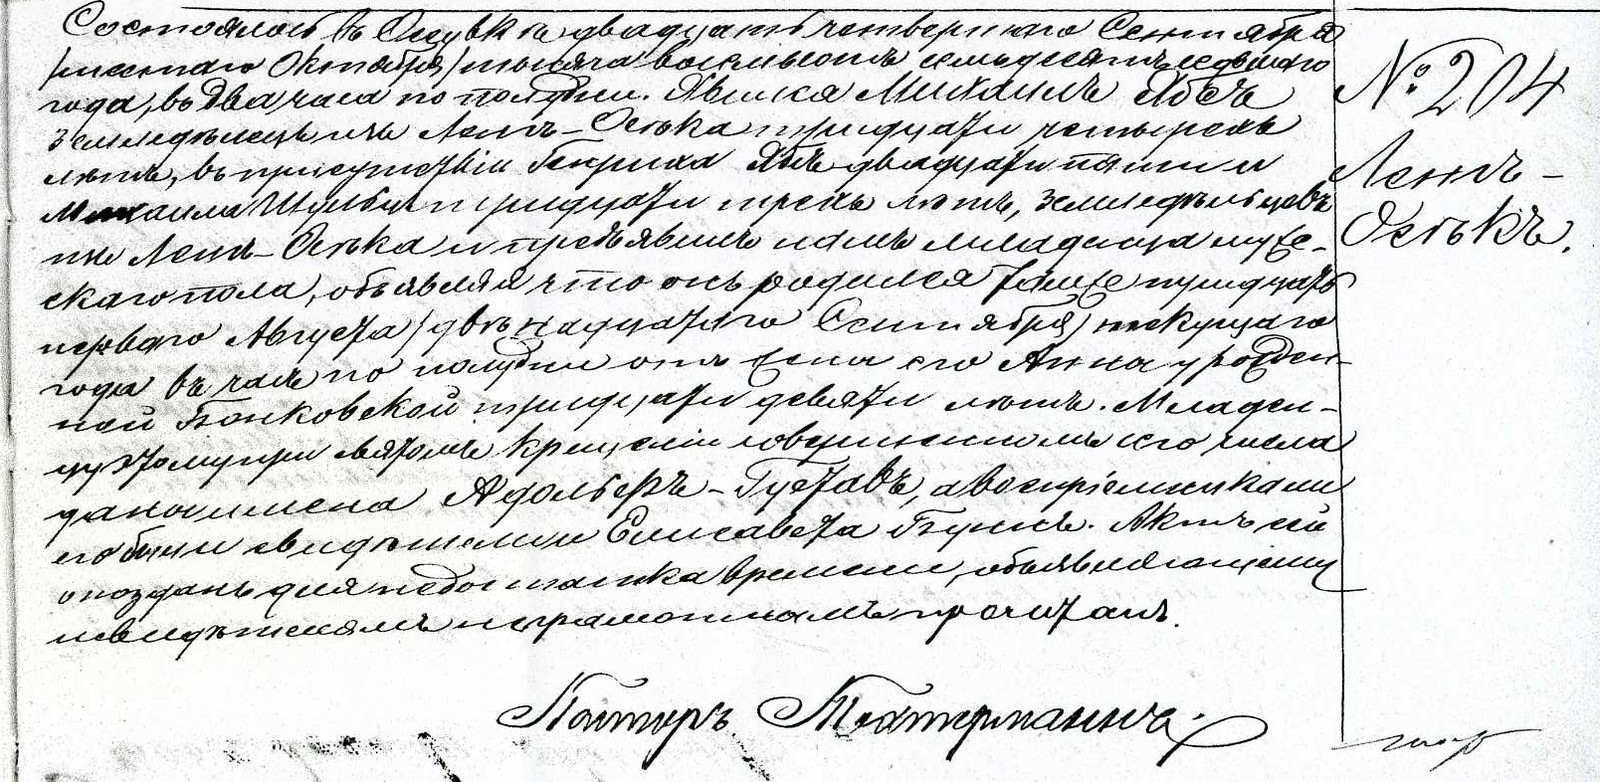 Состоялось въ двадцать четвертаго Сентября
/шестаго Октября/ тысяча восемьсотъ семьдесятъ седьмаго
года, въ два часа по полудни. Явился Михаилъ
земледѣлецъ изъ Ленъ-Оська тридцати четырехъ
лѣтъ, въ присутствіи Генриха двадцати пяти и
Михаила Шульца тридцати трехъ лѣтъ, земледѣльцевъ
изъ Ленъ-Оська и предъявилъ намъ младенца муже-
скаго пола, объявляя что онъ родился тамже тридцать
перваго Августа /двѣнадцатаго Сентября/ текущаго
года въ часъ по полудни отъ жены его Анны урожден-
ной Бонковской тридцати девяти лѣтъ. Младен-
цу этому при святомъ крещеніи совершенномъ сего числа
дано имена Адольфъ-Густавъ, а воспріемниками
его были свидѣтели и Елисавета. Актъ сей
опозданъ для недостатка времени, объявляющему
и свидѣтелямъ неграмотнымъ прочитанъ.
Пасторъ
№ 204
Ленъ-
Оськъ.